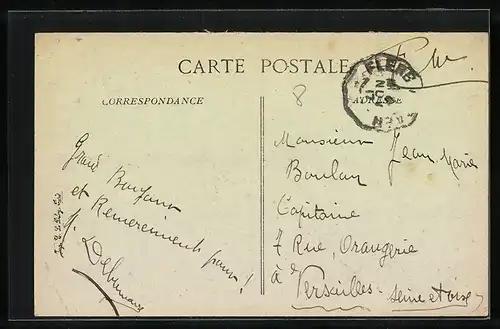 F.M.
CARTE POSTALE
FLERS
CORRESPONDANCE
ADRESSE
8
Monsieur Jean Marie
Boulay
Capitaine
7 Rue, Orangerie
à Versailles - Seine et Oise
Grand Bonjour
et Remerciements pour